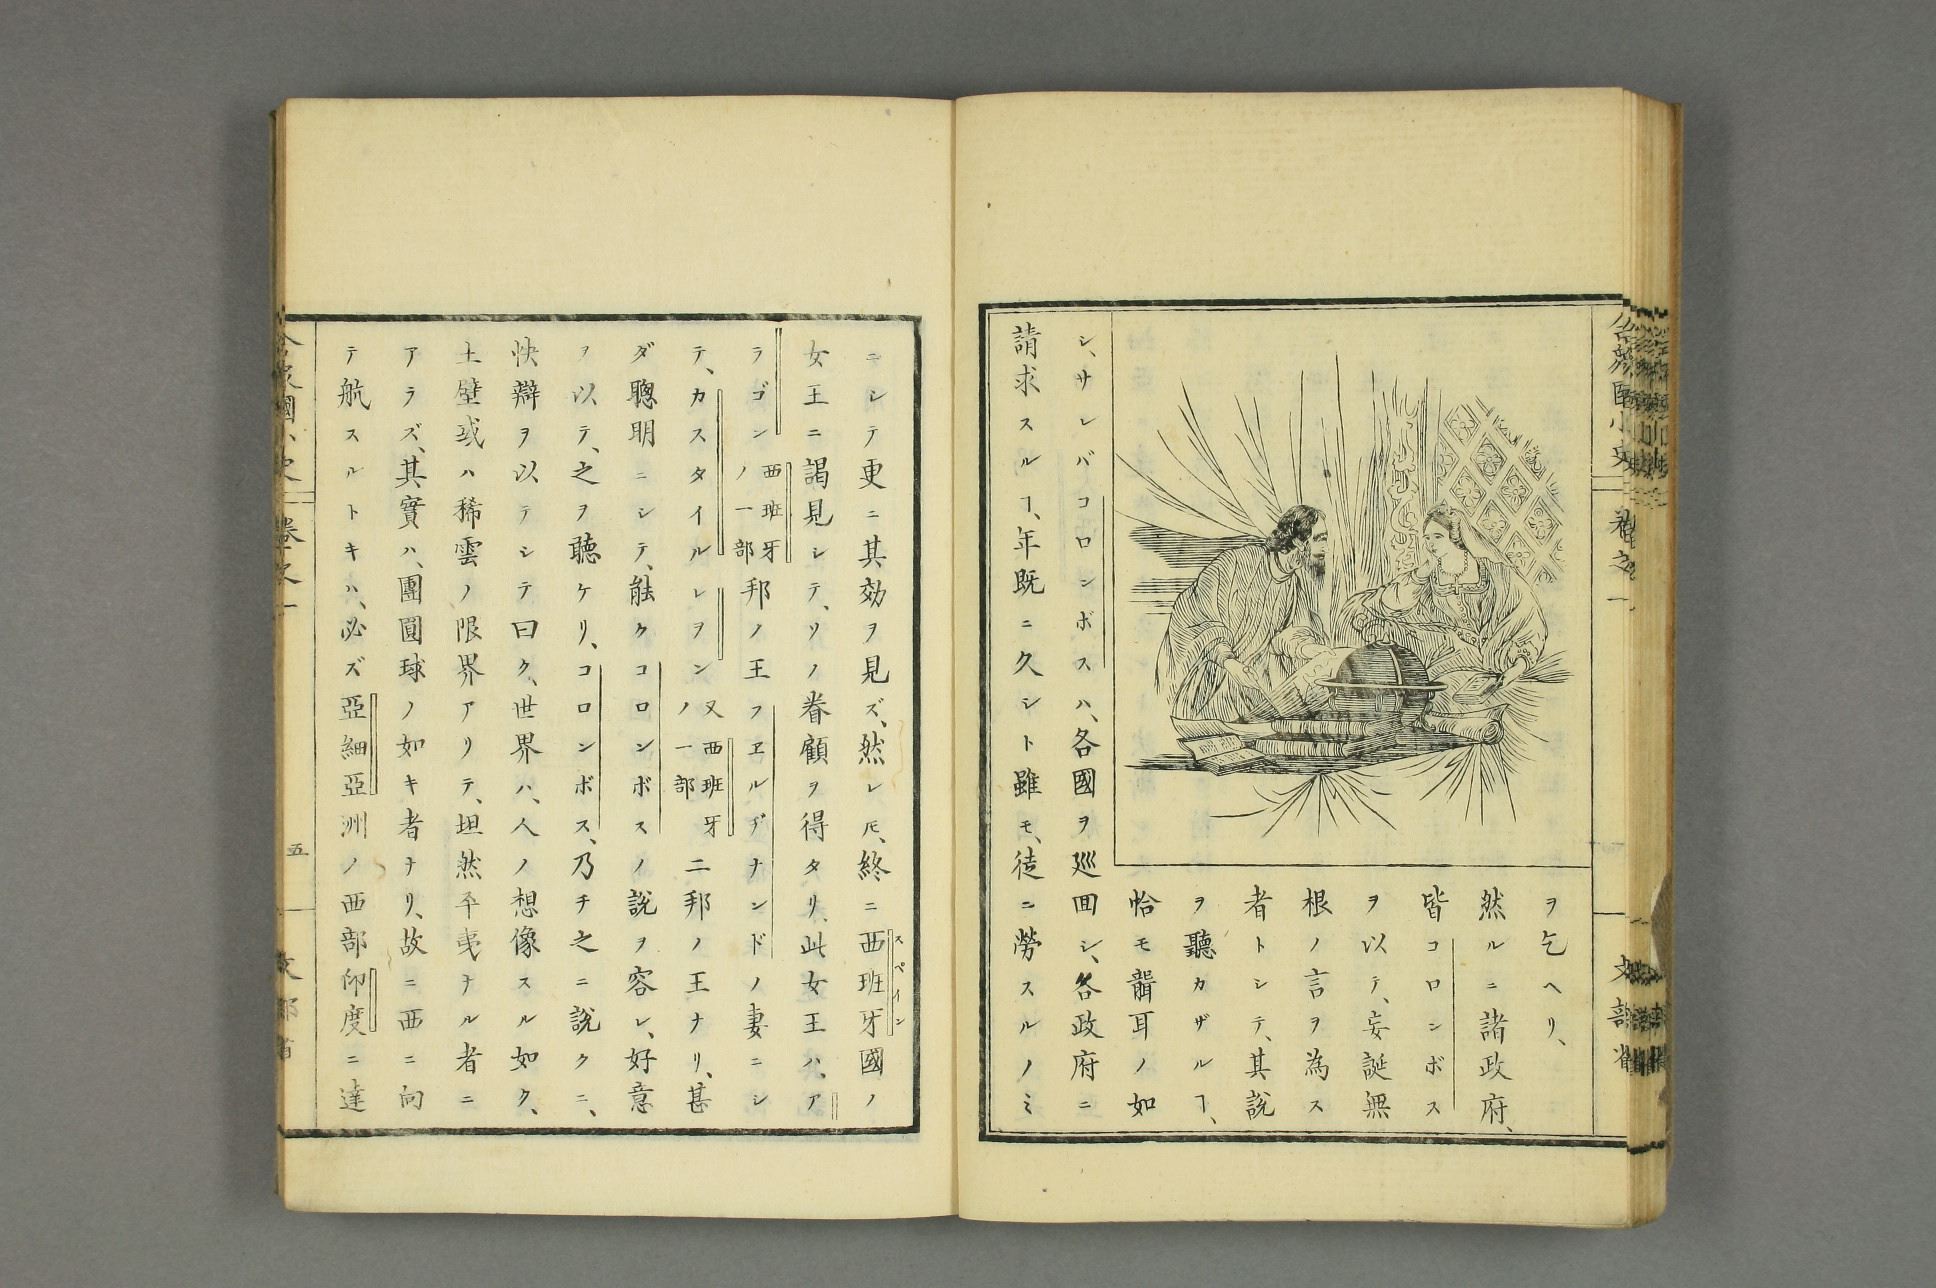 ヲ乞ヘリ、
然ルニ諸政府、
皆コロンボス
ヲ以テ、妄誕無
根ノ言ヲ為ス
者トシテ、其説
ヲ聽カザルヿ、
恰モ聾耳ノ如
シ、サレバコロンボスハ、各國ヲ巡回シ、各政府ニ
請求スルヿ、年既ニ久シト雖モ、徒ニ勞スルノミ
ニシテ更ニ其効ヲ見ズ、然レ𪜈、終ニ西班牙國ノ
スペイン
女王ニ謁見シテ、ソノ眷顧ヲ得タリ、此女王ハ、ア
ラゴン西班牙ノ一部邦ノ王フヱルヂナンドノ妻ニシ
テ、カスタイルレヲン又西班牙ノ一部二邦ノ王ナリ、甚
ダ聰明ニシテ、能クコロンボスノ説ヲ容レ、好意
ヲ以テ、之ヲ聽ケリ、コロンボス、乃チ之ニ説クニ、
快辯ヲ以テシテ曰ク、世界ハ、人ノ想像スル如ク、
土壁或ハ稀雲ノ限界アリテ、坦然平夷ナル者ニ
アラズ、其實ハ、團圓球ノ如キ者ナリ、故ニ西ニ向
テ航スルトキハ、必ズ亞細亞洲ノ西部印度ニ達
五